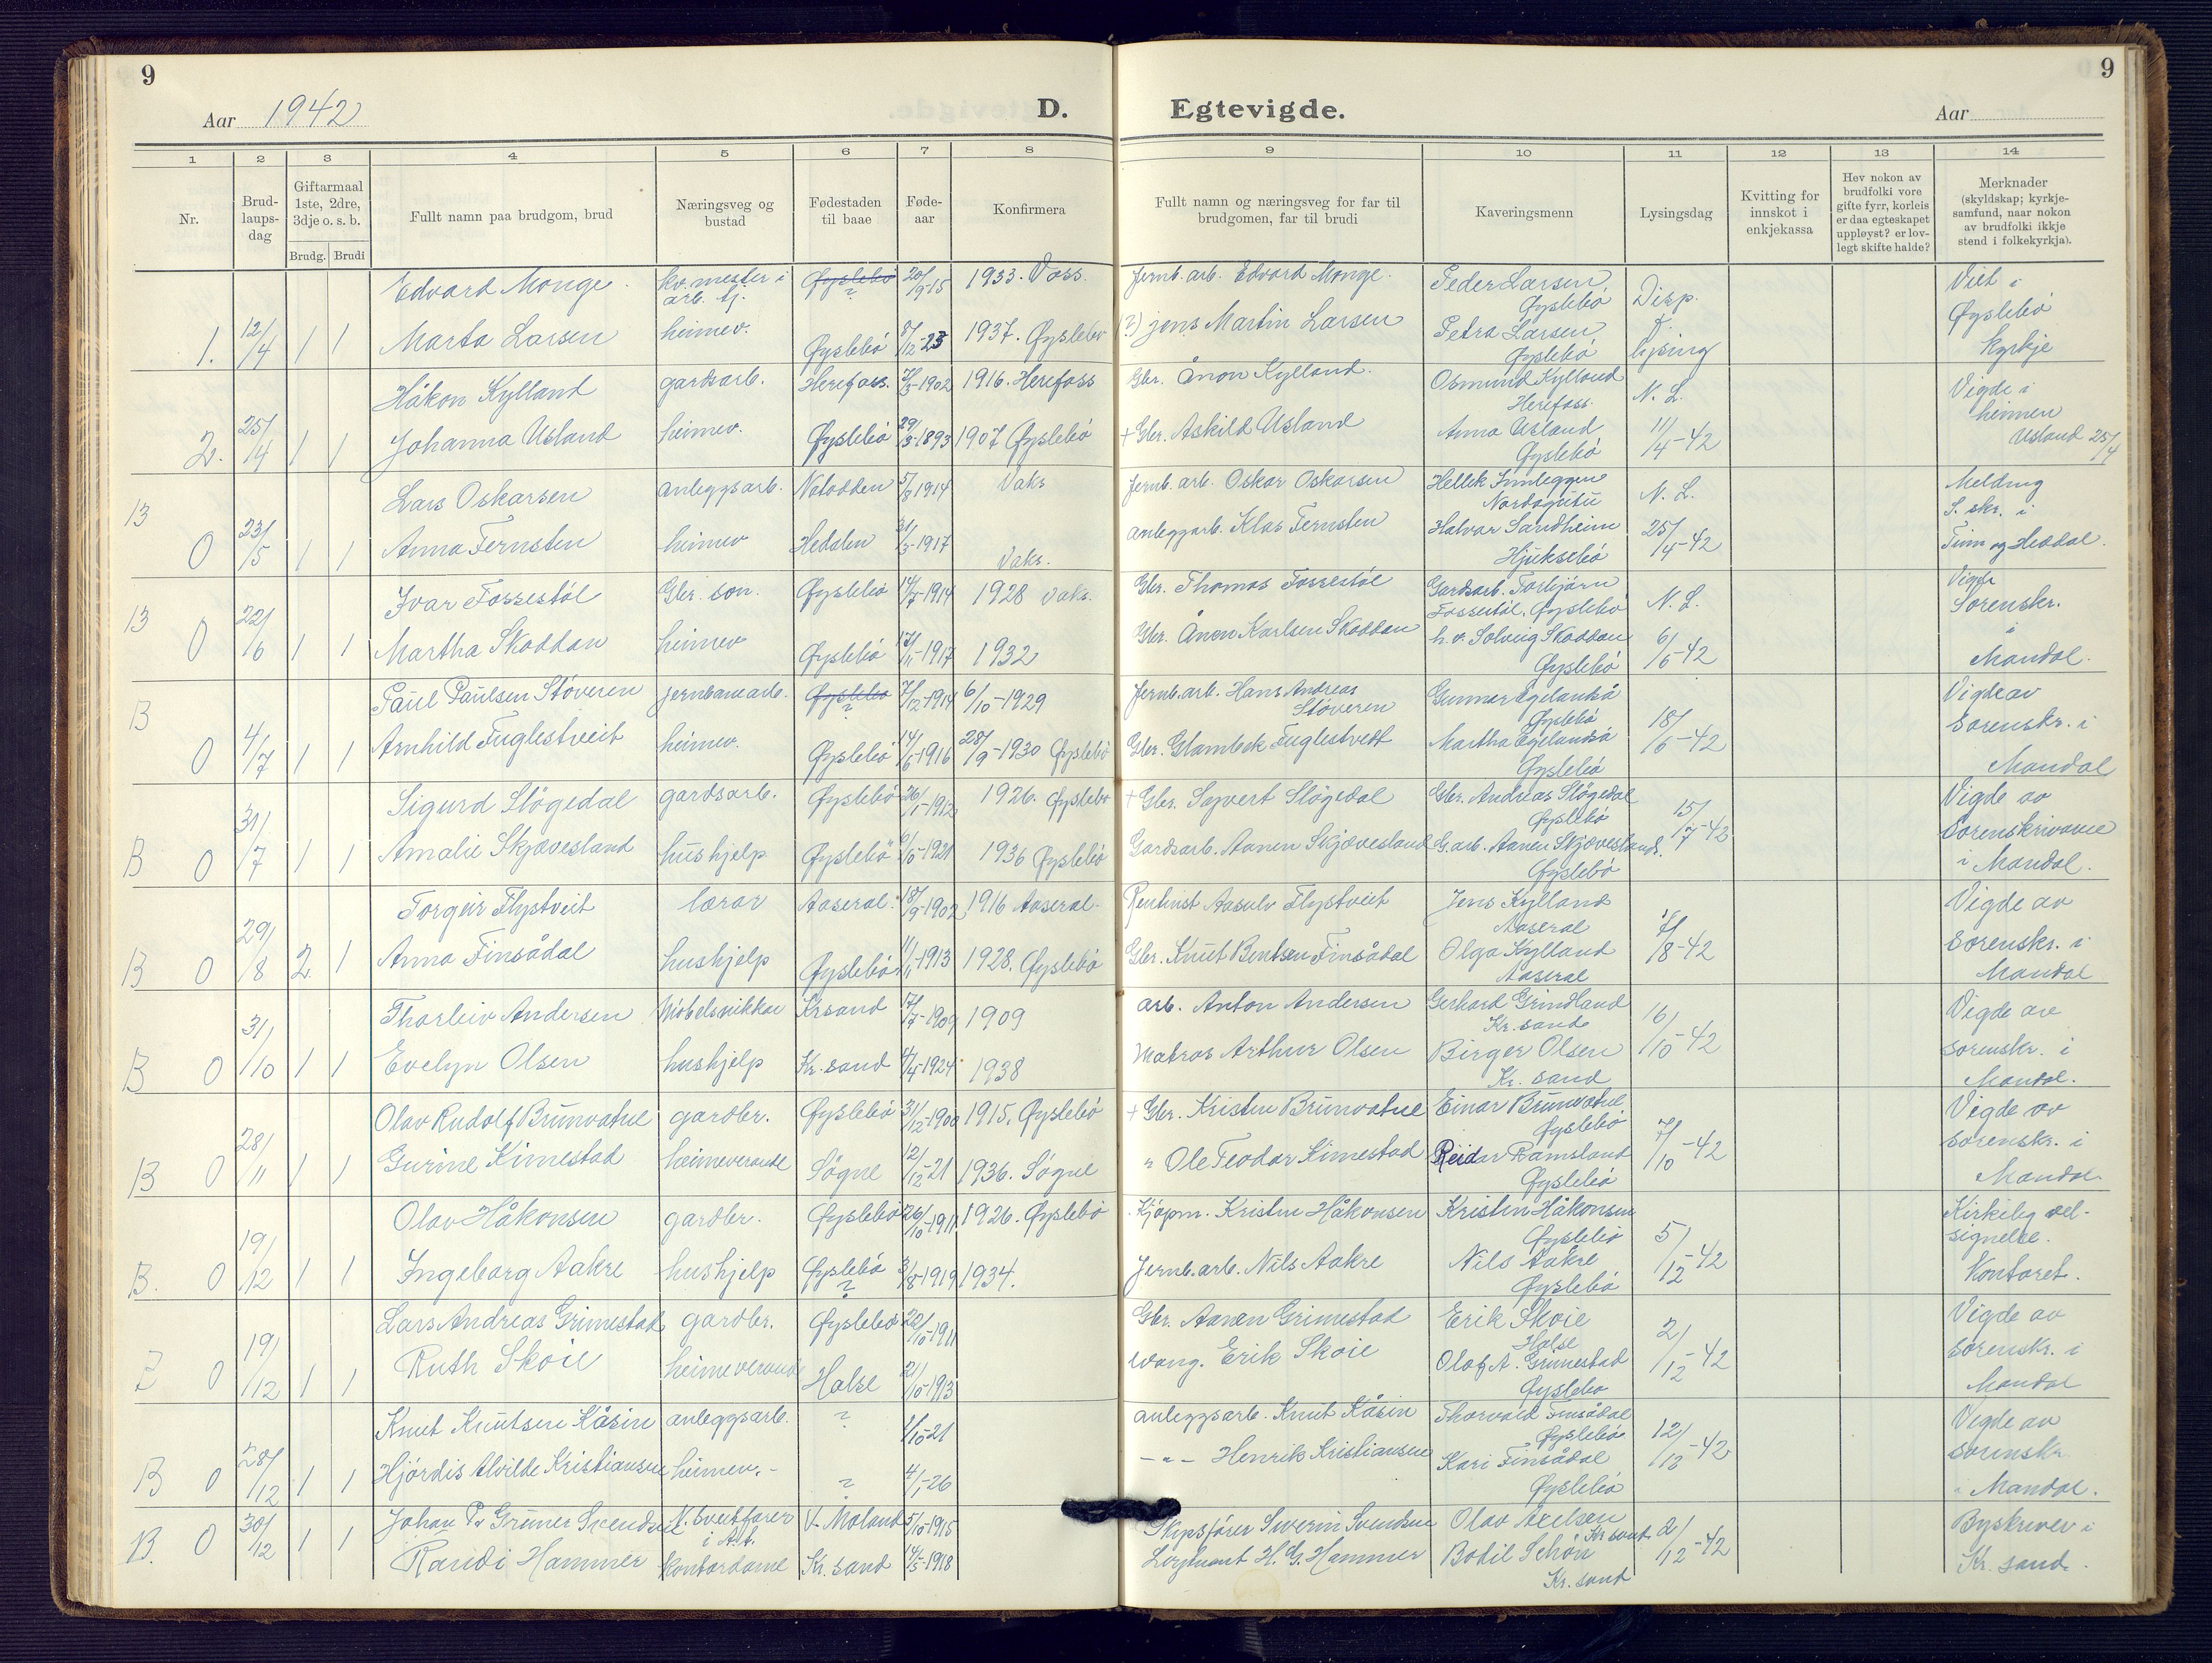 9
Aar 1942
D.
Egtevigde.
Aar
9
1 2 3 4 5 6 7 8 9 10 11 12 13 14
Nr.
Brud-
laups-
dag
Giftarmaal
1ste, 2dre,
3dje o. s. b.
Brudg. Brudi
Fullt namn paa brudgom, brud
Næringsveg og
bustad
Fødestaden
til baae
Føde-
aar
Konfirmera
Fullt namn og næringsveg for far til
brudgomen, far til brudi
Kaveringsmenn
Lysingsdag
Kvitting for
innskot i
enkjekassa
Hev nokon av
brudfolki vore
gifte fyrr, korleis
er daa egteskapet
uppløyst? er lov-
legt skifte halde?
Merknader
(skyldskap; kyrkje-
samfund, naar nokon
av brudfolki ikkje
stend i folkekyrkja).
Edvard Monge. kv.mester i arb. tj. Øyslebö ? 20/9-15 1933. Voss. Jernb. arb. Edvard Monge. Peder Larsen, Øyslebö Disp.
1. 12/4 1 1 Marta Larsen heimev. Øyslebö 8/12-23 1937. Øyslebö (?) Jens Martin Larsen Petra Larsen Øyslebö f. lysing Viet i Øyslebö kyrkje
Håkon Kylland gardsarb. Herefoss. 7/3-1902 1916. Herefoss Gbr. Ånon Kylland. Osmund Kylland Herefoss. N. L.
2. 25/4 1 1 Johanna Usland heimev. Øyslebö 29/3-1893 1907 Øyslebö + Gbr. Askild Usland Anna Usland Øyslebö 11/4-42 Vigde i heimen Usland 25/4
B Lars Oskarsen anleggsarb. Notodden 5/8 1914 Vaks Jernb. arb. Oskar Oskarsen Hellek Innleggen Nordagutu N. L.
0 23/5 1 1 Anna Fernsten heimev Hedalen 31/3-1917 Vaks. anleggarb. Klas Fernsten Halvor Sandheim Hjuksebö 25/4-42 Melding S. skr. i Tinn og Heddal.
B Ivar Fossestöl Gbr. son. Øyslebö 14/7-1914 1928 Vaks. Gbr. Thomas Fossestöl Gardsarb. Torbjörn Fossestöl, Øyslebö N. L.
0 22/6 1 1 Martha Skoddan heimev Øyslebö 17/11-1917 1932 Gbr. Ånen Karlsen Skoddan h.v. Solveig Skoddan Øyslebö 6/6-42 Vigde Sorenskr. i Mandal.
B Paul Paulsen Stöveren jernbanearb. Øyslebö ? 7/12-1914 6/10-1929 Jernb. arb. Hans Andreas Stöveren Gunnar Egelandså Øyslebö
0 4/7 1 1 Arnhild Fuglestveit heimev. Øyslebö 14/6-1916 28/9-1930 Øyslebö Gbr. Glambek Fuglestvedt Martha Egelandså Øyslebö 18/6-42 Vigde av sorenskr. i Mandal
Sigurd Stögedal gardsarb. Øyslebö 26/1-1912 1926. Øyslebö + Gbr. Sayvert Stögedal Gbr. Andreas Stögedal Øyslebö
B 0 31/7 1 1 Amalie Skjævesland hushjelp Øyslebö 9/10-1921 1936 Øyslebö Gardsarb. Aanen Skjævesland G.arb. Aanen Skjævesland. Øyslebö 15/7-42 Vigde av sorenskrivaren i Mandal.
Torgeir Flystveit lærar Aaseral. 18/9-1902 1916 Aaseral. Rentenist Aasulv Flystveit Jens Kylland Aaseral
B 0 29/8 2 1 Anna Finsådal hushjelp Øyslebö 11/11-1913 1928. Øyslebö Gbr. Knut Bentsen Finsådal Olga Kylland Aaseral 7/8-42 Vigde av sorenskr. i Mandal
Thorleiv Andersen Möbelsnikkar Krsand 17/7-1909 1909 arb. Anton Andersen Gerhard Grindland Kr. sand
B 0 31/10 1 1 Evelyn Olsen hushjelp Kr. sand 4/4-1924 1938 Matros Arthur Olsen Birger Olsen Kr. sand 16/10-42 Vigde av sorenskr. i Mandal.
Olav Rudolf Brunvatne gardbr. Øyslebö 31/12-1900 1915. Øyslebö + Gbr. Kristen Brunvatne Einar Brunvatne Øyslebö
B 0 28/11 1 1 Gurine Kimestad heimeverande Sögne 12/12-21 1936. Sögne " Ole Teodor Kimestad Reidar Ramsland Øyslebö 7/10-42 Vigde av sorenskr. i Mandal.
Olav Håkonsen gardbr. Øyslebö 26/10-1911 1926. Øyslebö Kjöpm. Kristen Håkonsen Kristen Håkonsen Øyslebö
B. 0 19/12 1 1 Ingeborg Aakre hushjelp Øyslebö ? 3/8-1919 1934. Jernb.arb. Nils Aakre Nils Aakre Øyslebö 5/12-42 Kirkileg vel-signelse. Kontoret.
Lars Andreas Grimestad gardbr. Øyslebö 28/10-1911 Gbr. Aanen Grimestad Erik Skoie Halse
0 19/12 1 1 Ruth Skoie heimeverande Halse 21/10-1913 Erik Skoie Olaf A. Grimestad Øyslebö 2/12-42 Vigde av sorenskr. i Mandal
Knut Knutsen Kåsin anleggsarb. ? 1/10-21 anleggsarb. Knut Kåsin Thorvald Finsådal Øyslebö
B 0 28/12 1 1 Hjördis Alvilde Kristiansen heimev.- ? 4/1-26 - " - Henrik Kristiansen Kari Finsådal Øyslebö 12/12-42 Vigde av sorenskr i Mandal.
Johan P. Grüner Svendsen i A.t. V. Moland 5/10-1915 Skipsförer Swerin Svendsen Olav Axelsen Kr sand
B. 0 30/12 1 1 Randi Hammer kontordame Kr. sand 14/5-1918 H. G. Hammer Bodil Schön Kr. sand 2/12-42 Byskriver i Kr. sand.